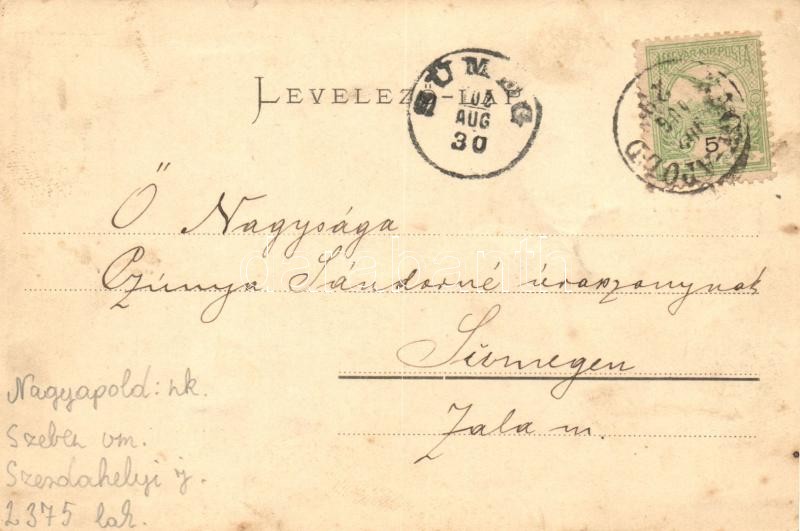 MAGYAR KIR. POSTA
5
SÜMEG
AUG
30
LEVELEZŐ-LAP
Ő Nagysága
Sándorné úrasszonynak
Sümegen
Zala m.
Nagyapold: nk.
Szeben vm.
Szerdahelyi j.
2375 lak.